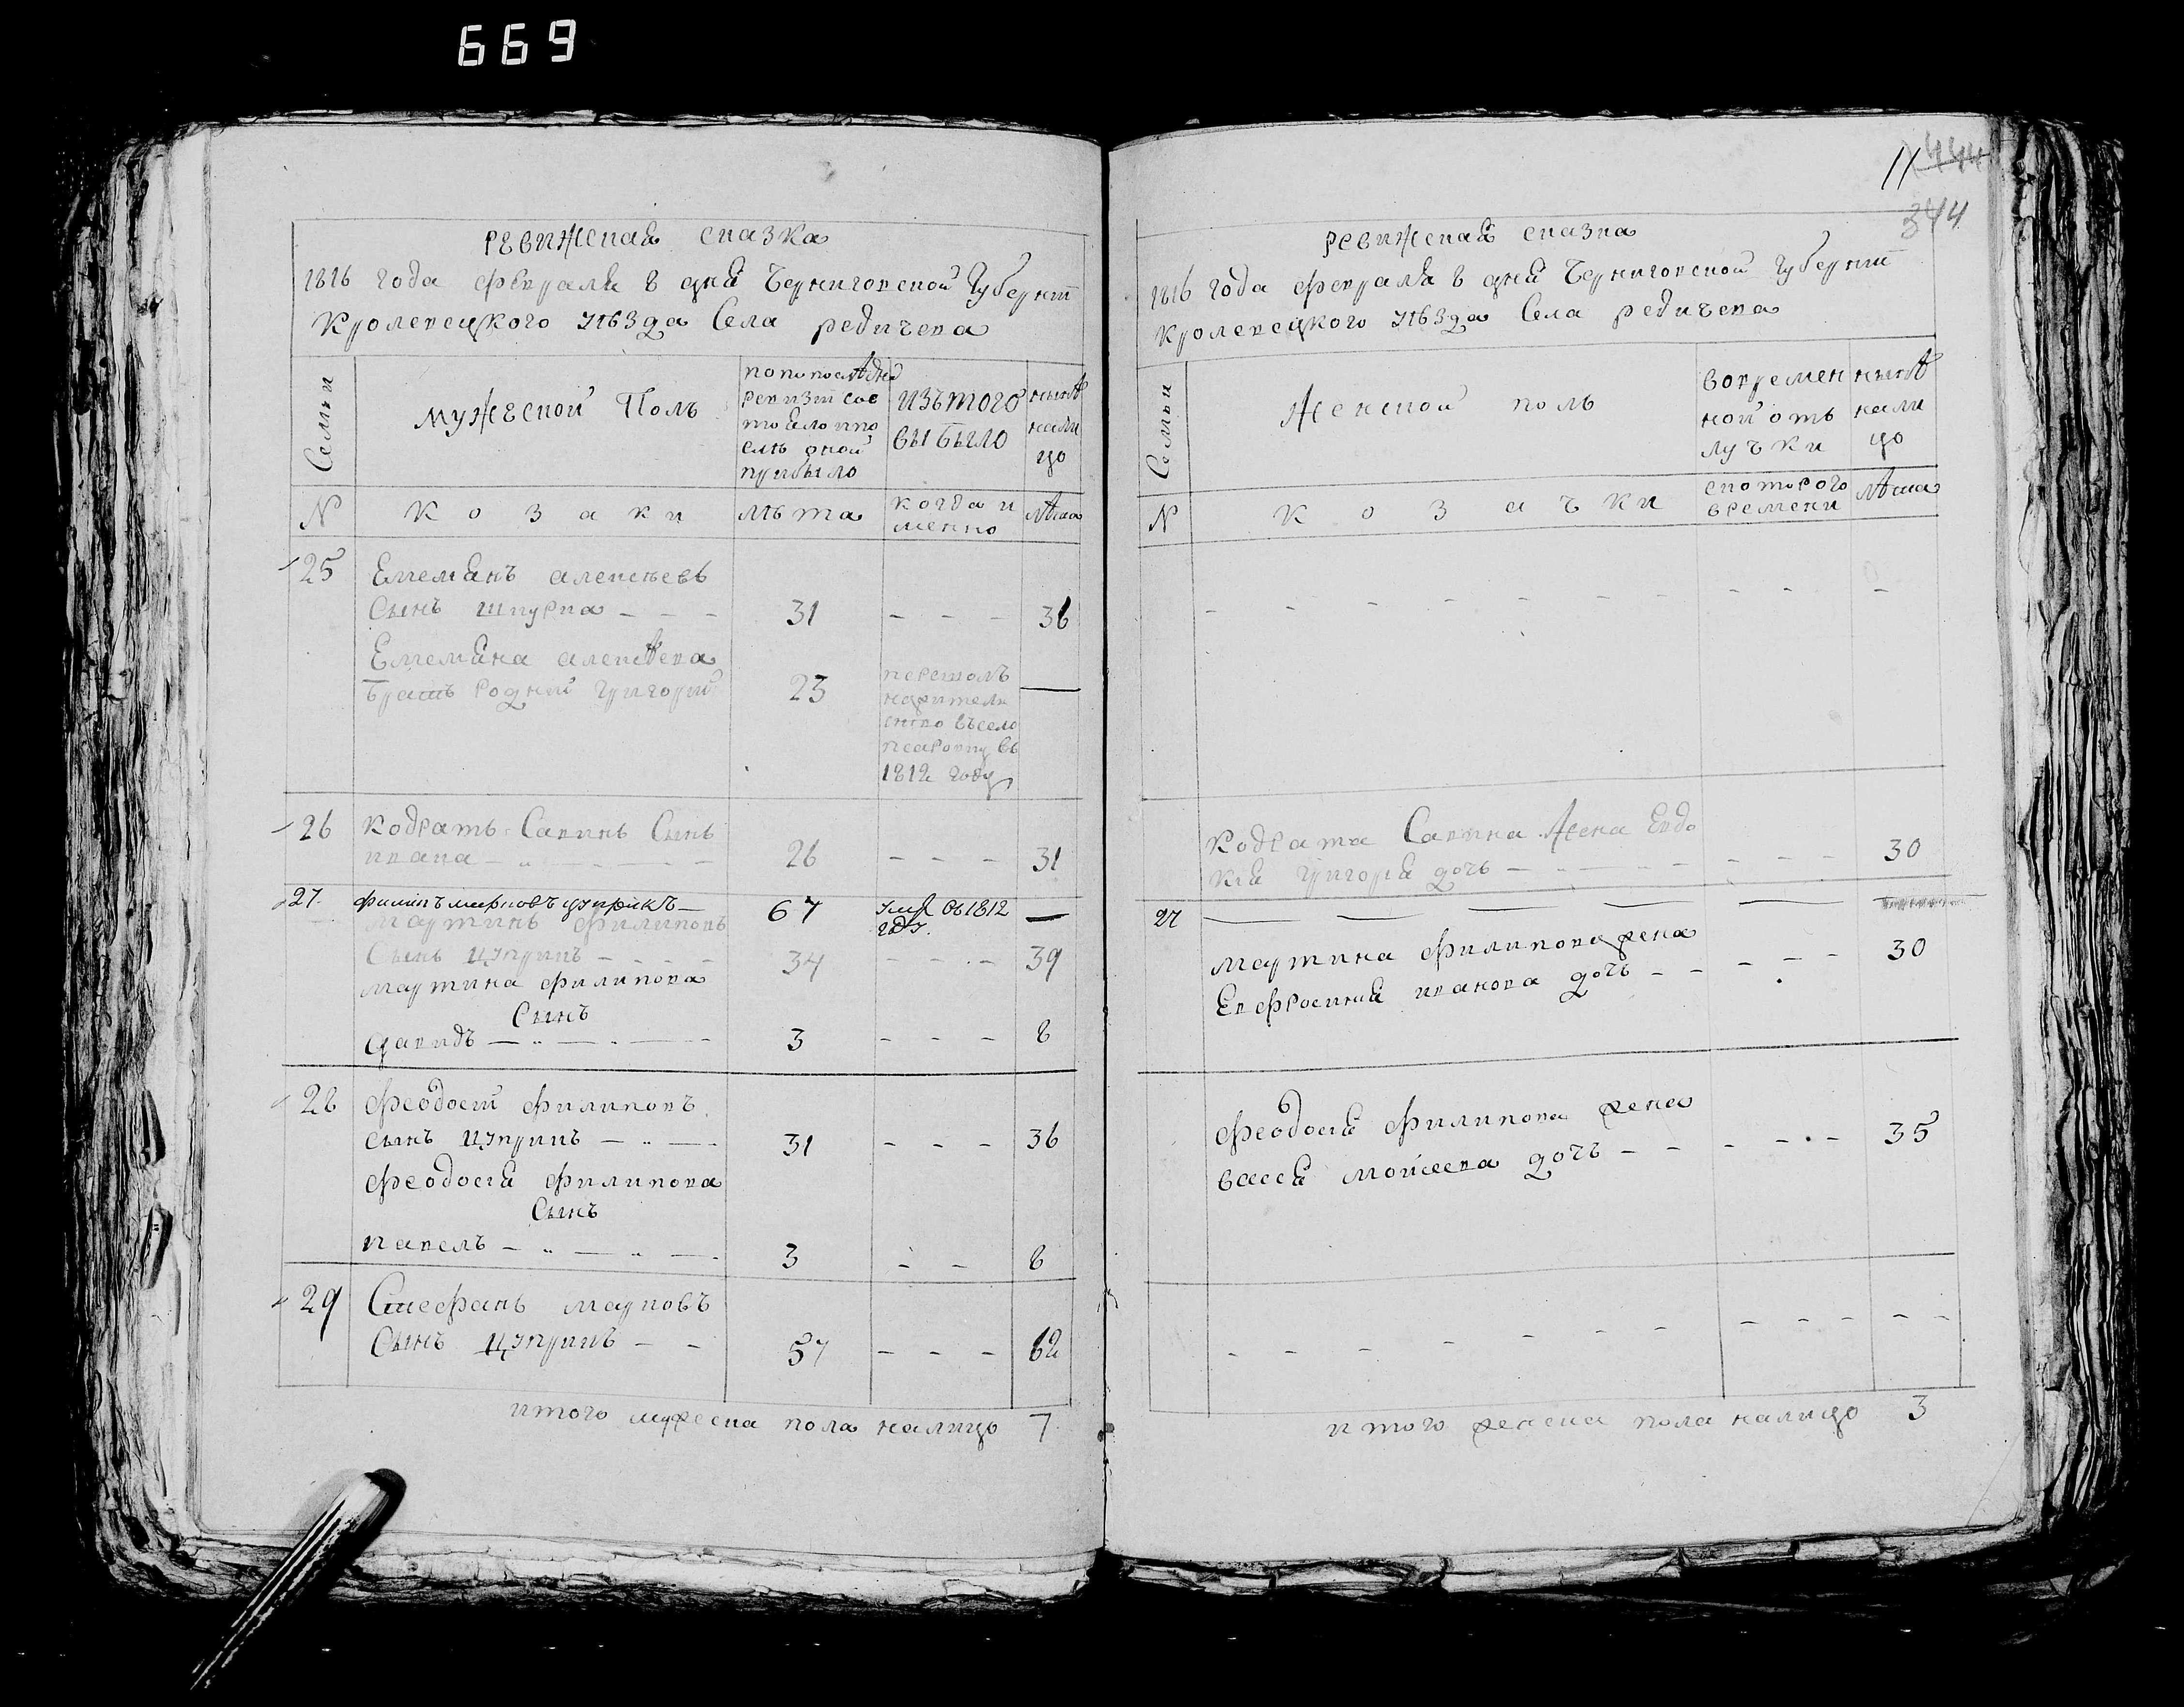 669
11 444
344
ревижская сказка
1816 года февраля 8 дня Черниговской Губерніи
Кролевецкого уѣзда Села редичева
Семьи
мужеской Полъ
по последней
ревизіи сос
тояло и по
слѣ оной
прибыло
изъ того
выбыло
нынѣ
нали
цо
N
козаки
лѣта
когда и
менно
лѣта
25
Емелянъ алексѣевъ
Сынъ шкурка
31
36
Емеляна алексѣева
братъ родной григорій
23
перешолъ
на жители
ство въ село
псаровку въ
1812 году
26
кодратъ Савинъ Сынъ
26
31
27.
филипъ марковъ цуприкъ
67
умре въ 1812
году.
мартинъ филиповъ
Сынъ цуприкъ
34
39
мартина филипова
Сынъ
давидъ
3
8
28
феодосій филиповъ
сынъ цуприкъ
31
36
феодосія филипова
Сынъ
павелъ
3
8
29
Стефанъ марковъ
Сынъ цуприкъ
57
62
итого мужеска пола налицо 7
ревижская сказка
1816 года февраля 8 дня Черниговской губерніи
кролевецкого уѣзда Села редичева
Семьи
женской полъ
во времен
ной отъ
лучки
нынѣ
нали
цо
N
козачки
с которого
времени
лѣта
кодрата Савина жена Евдо
кія григорія дочь
30
27
мартина филипова жена
Евфросинія иванова дочь
30
феодосія филипова жена
васса мойсеева дочь
35
итого женска пола налицо 3